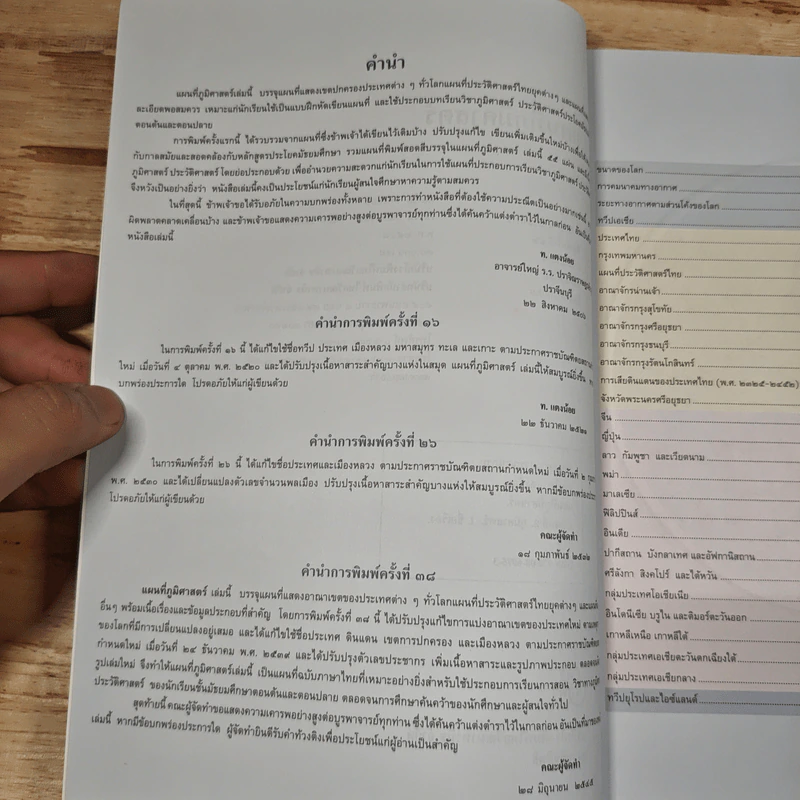 คำนำ
แผนที่ภูมิศาสตร์เล่มนี้ บรรจุแผนที่แสดงเขตปกครองประเทศต่าง ๆ ทั่วโลกแผนที่ประวัติศาสตร์ไทยยุคต่างๆ
ละเอียดพอสมควร เหมาะแก่นักเรียนใช้เป็นแบบฝึกหัดเขียนแผนที่ และใช้ประกอบบทเรียนวิชาภูมิศาสตร์ ประวัติศาสตร์
ตอนต้นและตอนปลาย
การพิมพ์ครั้งแรกนี้ ได้รวบรวมจากแผนที่ซึ่งข้าพเจ้าได้เขียนไว้เดิมบ้าง ปรับปรุงแก้ไข เขียนเพิ่มเติมขึ้นใหม่บ้าง
กับกาลสมัยและสอดคล้องกับหลักสูตรประโยคมัธยมศึกษา รวมแผนที่พิมพ์สอดสีบรรจุในแผนที่ภูมิศาสตร์ เล่มนี้ ๕๕ แผ่น
ภูมิศาสตร์ ประวัติศาสตร์ โดยย่อประกอบด้วย เพื่ออำนวยความสะดวกแก่นักเรียนในการใช้แผนที่ประกอบการเรียนวิชาภูมิศาสตร์
จึงหวังเป็นอย่างยิ่งว่า หนังสือเล่มนี้คงเป็นประโยชน์แก่นักเรียนผู้สนใจศึกษาหาความรู้ตามสมควร
ในที่สุดนี้ ข้าพเจ้าขอได้รับอภัยในความบกพร่องทั้งหลาย เพราะการทำหนังสือที่ต้องใช้ความประณีตเป็นอย่างมากเช่นนี้
ผิดพลาดคลาดเคลื่อนบ้าง และข้าพเจ้าขอแสดงความเคารพอย่างสูงต่อบูรพาจารย์ทุกท่านซึ่งได้ค้นคว้าแต่งตำราไว้ในกาลก่อน
หนังสือเล่มนี้
ท. แตงน้อย
อาจารย์ใหญ่ ร.ร. ปราจิณราษฎร
ปราจีนบุรี
๒๒ สิงหาคม
คำนำการพิมพ์ครั้งที่ ๑๖
ในการพิมพ์ครั้งที่ ๑๖ นี้ ได้แก้ไขใช้ชื่อทวีป ประเทศ เมืองหลวง มหาสมุทร ทะเล และเกาะ ตามประกาศราชบัณฑิตยสถาน
ใหม่ เมื่อวันที่ ๔ ตุลาคม พ.ศ. ๒๕๒๐ และได้ปรับปรุงเนื้อหาสาระสำคัญบางแห่งในสมุด แผนที่ภูมิศาสตร์ เล่มนี้ให้สมบูรณ์ยิ่งขึ้น
บกพร่องประการใด โปรดอภัยให้แก่ผู้เขียนด้วย
ท. แตงน้อย
๒๒ ธันวาคม ๒๕๒๑
คำนำการพิมพ์ครั้งที่ ๒๖
ในการพิมพ์ครั้งที่ ๒๖ นี้ ได้แก้ไขชื่อประเทศและเมืองหลวง ตามประกาศราชบัณฑิตยสถานกำหนดใหม่ เมื่อวันที่ ๒
พ.ศ. ๒๕๓๐ และได้เปลี่ยนแปลงตัวเลขจำนวนพลเมือง ปรับปรุงเนื้อหาสาระสำคัญบางแห่งให้สมบูรณ์ยิ่งขึ้น หากมีข้อบกพร่อง
โปรดอภัยให้แก่ผู้เขียนด้วย
คณะผู้จัดทำ
๑๘ กุมภาพันธ์
คำนำการพิมพ์ครั้งที่ ๓๘
แผนที่ภูมิศาสตร์ เล่มนี้ บรรจุแผนที่แสดงอาณาเขตของประเทศต่าง ๆ ทั่วโลกแผนที่ประวัติศาสตร์ไทยยุคต่างๆ
อื่นๆ พร้อมเนื้อเรื่องและข้อมูลประกอบที่สำคัญ โดยการพิมพ์ครั้งที่ ๓๘ นี้ ได้ปรับปรุงแก้ไขการแบ่งอาณาเขตของประเทศใหม่
ของโลกที่มีการเปลี่ยนแปลงอยู่เสมอ และได้แก้ไขใช้ชื่อประเทศ ดินแดน เขตการปกครอง และเมืองหลวง ตามประกาศราชบัณฑิตยสถาน
กำหนดใหม่ เมื่อวันที่ ๒๔ ธันวาคม พ.ศ. ๒๕๓๙ และได้ปรับปรุงตัวเลขประชากร เพิ่มเนื้อหาสาระและรูปภาพประกอบ ตลอดจน
รูปเล่มใหม่ จึงทำให้แผนที่ภูมิศาสตร์เล่มนี้ เป็นแผนที่ฉบับภาษาไทยที่เหมาะอย่างยิ่งสำหรับใช้ประกอบการเรียนการสอน
ประวัติศาสตร์ ของนักเรียนชั้นมัธยมศึกษาตอนต้นและตอนปลาย ตลอดจนการศึกษาค้นคว้าของนักศึกษาและผู้สนใจทั่วไป
สุดท้ายนี้ คณะผู้จัดทำขอแสดงความเคารพอย่างสูงต่อบูรพาจารย์ทุกท่าน ซึ่งได้ค้นคว้าแต่งตำราไว้ในกาลก่อน อันเป็นที่มา
เล่มนี้ หากมีข้อบกพร่องประการใด ผู้จัดทำยินดีรับคำท้วงติงเพื่อประโยชน์แก่ผู้อ่านเป็นสำคัญ
คณะผู้จัดทำ
๒๘ มิถุนายน ๒๕๔๕
ขนาดของโลก
การคมนาคมทางอากาศ
ระยะทางอากาศตามส่วนโค้งของโลก
ทวีปเอเชีย
ประเทศไทย
กรุงเทพมหานคร
แผนที่ประวัติศาสตร์ไทย
อาณาจักรน่านเจ้า
อาณาจักรกรุงสุโขทัย
อาณาจักรกรุงศรีอยุธยา
อาณาจักรกรุงธนบุรี
อาณาจักรกรุงรัตนโกสินทร์
การเสียดินแดนของประเทศไทย (พ.ศ. ๒๓๒๕-๒๔๕๒)
จังหวัดพระนครศรีอยุธยา
จีน
ญี่ปุ่น
ลาว กัมพูชา และเวียดนาม
พม่า
มาเลเซีย
ฟิลิปปินส์
อินเดีย
ปากีสถาน บังกลาเทศ และอัฟกานิสถาน
ศรีลังกา สิงคโปร์ และไต้หวัน
กลุ่มประเทศโอเชียเนีย
อินโดนีเซีย บรูไน และติมอร์ตะวันออก
เกาหลีเหนือ เกาหลีใต้
กลุ่มประเทศเอเชียตะวันตกเฉียงใต้
กลุ่มประเทศเอเชียกลาง
ทวีปยุโรปและไอซ์แลนด์